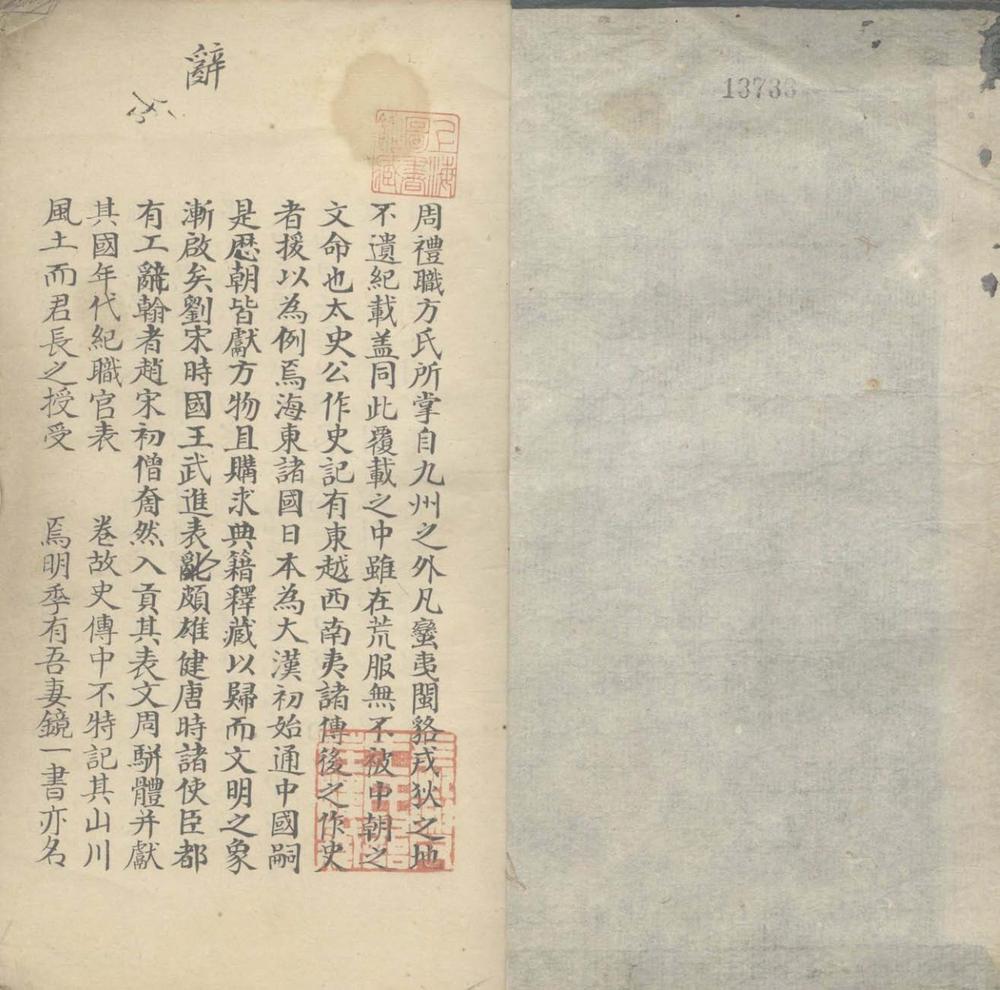 辭
周禮職方氏所掌自九州之外凡蠻夷閩貉戎狄之地
不遺紀載盖同此覆載之中雖在荒服無不被中朝之
文命也太史公作史記有東越西南夷諸傳後之作史
者援以為例焉海東諸國日本為大漢初始通中國嗣
是歷朝皆獻方物且購求典籍釋藏以歸而文明之象
漸啟矣劉宋時國王武進表亂頗雄健唐時諸使臣都
有工辭翰者趙宋初僧奝然入貢其表文周駢體并獻
其國年代紀職官表 卷故史傳中不特記其山川
風土而君長之授受 焉明季有吾妻鏡一書亦名
上海圖書館藏
13733